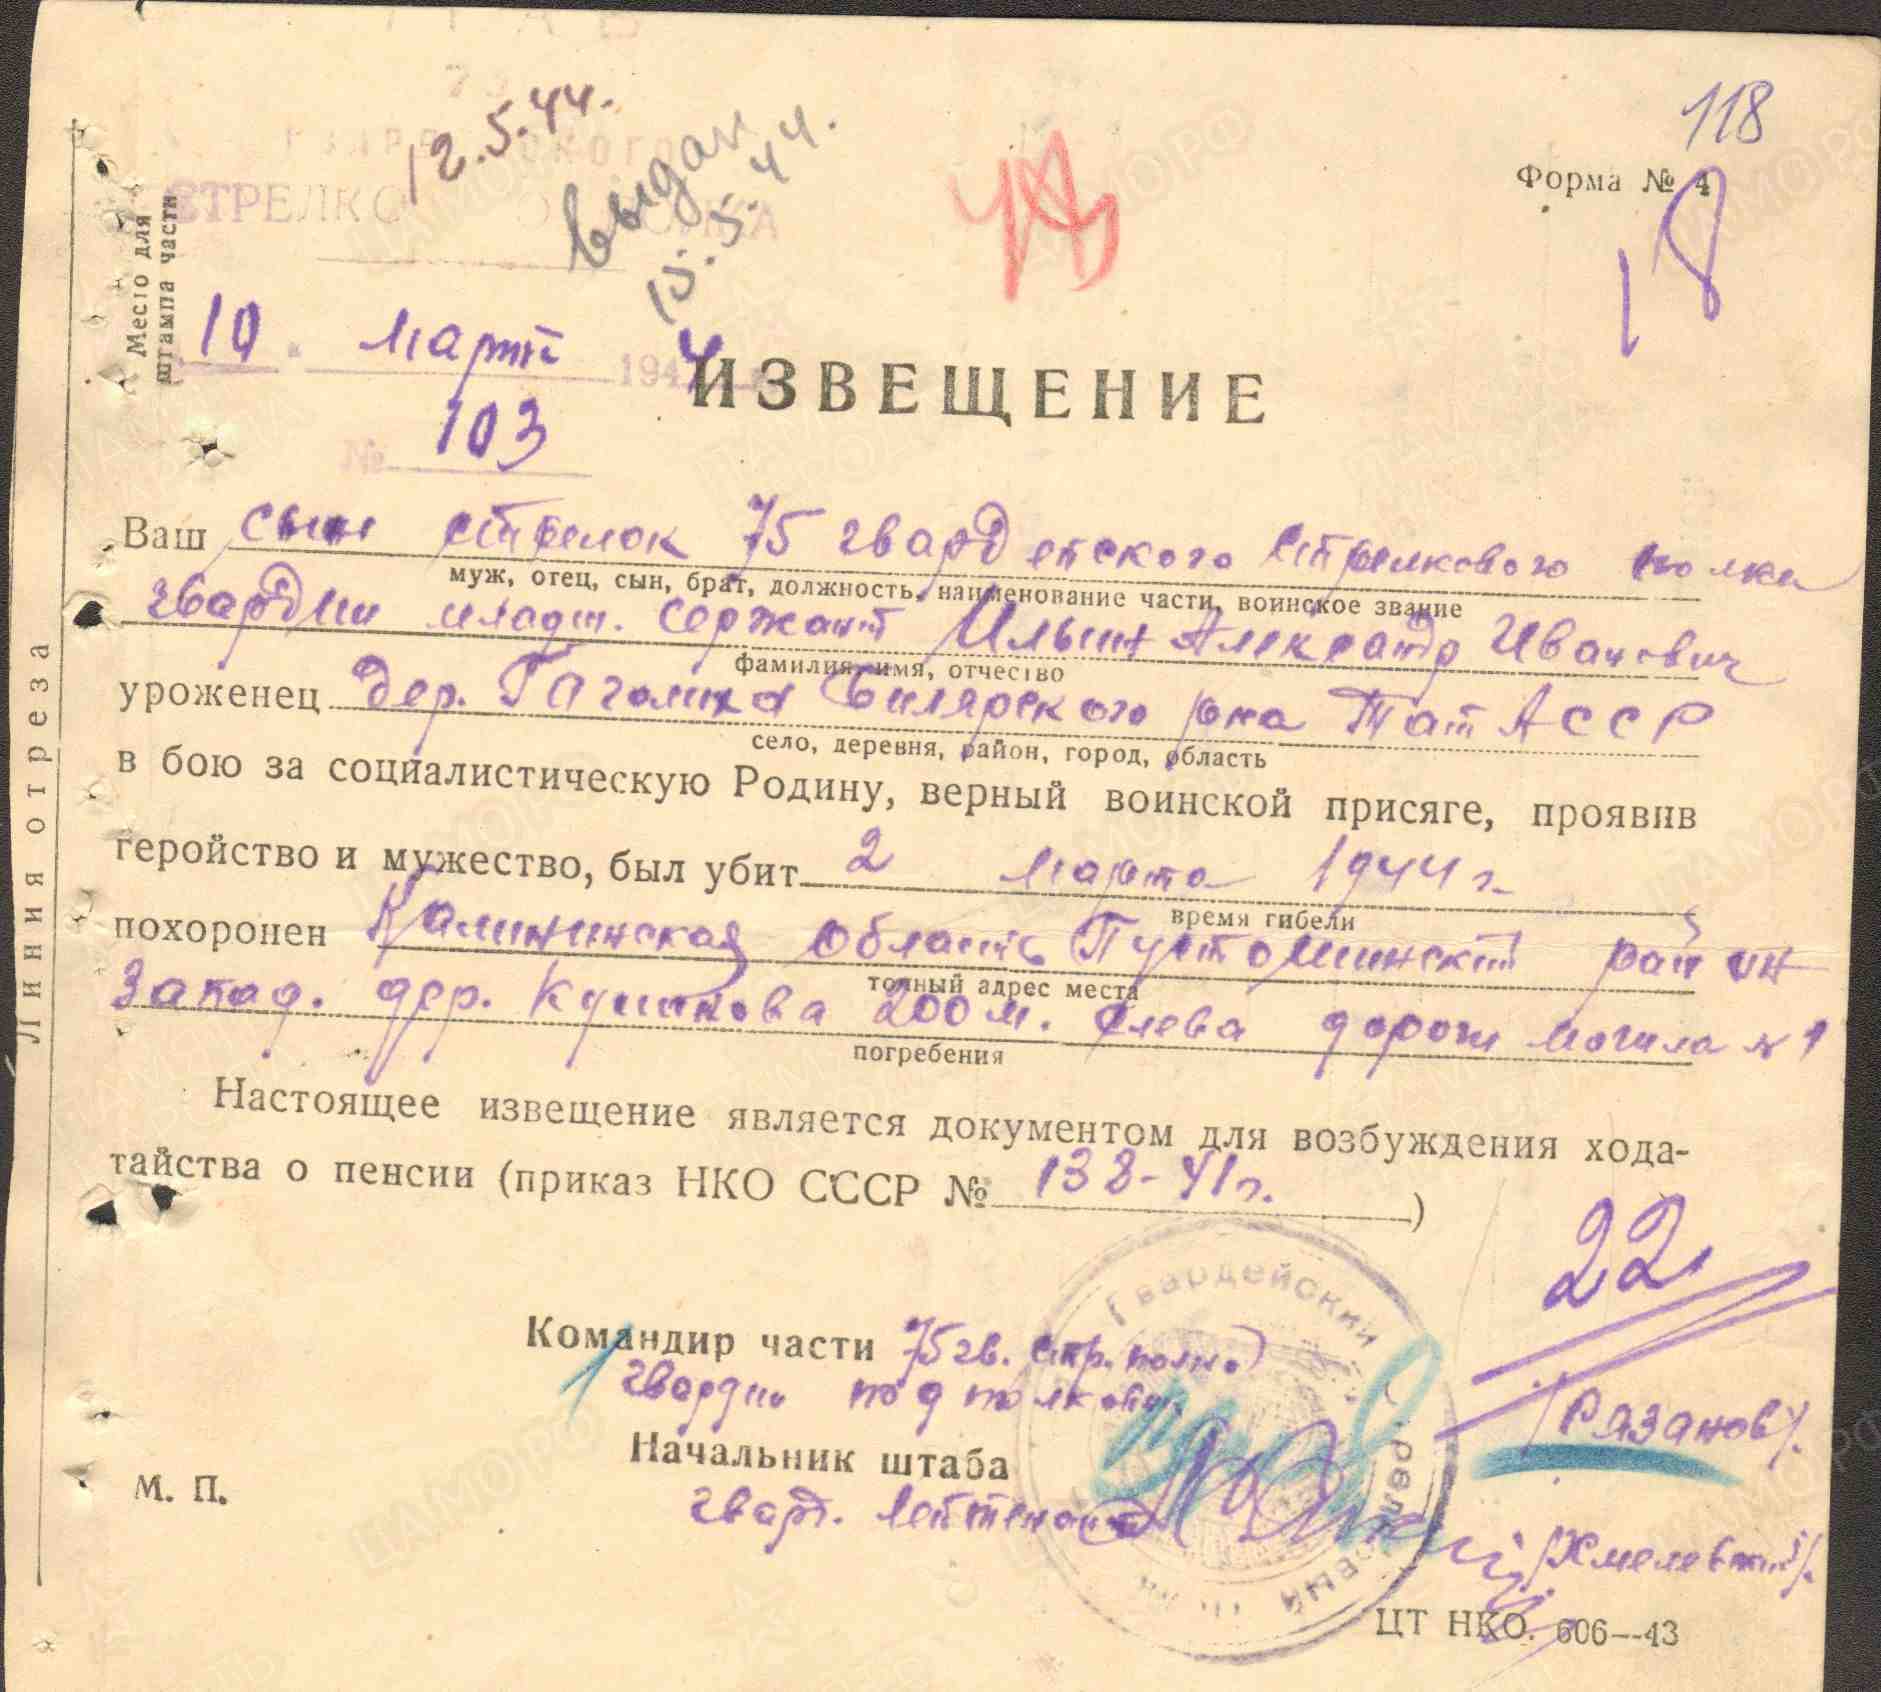 12.5.44.
выдан
15.5.44.
118
Форма № 4
18
СТРЕЛКО
Место для
штампа части
10 " Март 1944
ИЗВЕЩЕНИЕ
№ 103
Ваш сын стрелок 75 гвардейского стрелкового полка
муж, отец, сын, брат, должность, наименование части, воинское звание
гвардии младш. сержант Ильин Александр Иванович
фамилия, имя, отчество
уроженец дер. Билярского рна Тат АССР
село, деревня, район, город, область
в бою за социалистическую Родину, верный воинской присяге, проявив
геройство и мужество, был убит 2 марта 1944 г.
время гибели
похоронен Калининская область Пустошинский район
точный адрес места
Запад. дер. 200 м. слева дороги могила № 1
погребения
Настоящее извещение является документом для возбуждения хода-
тайства о пенсии (приказ НКО СССР № 138-41г.)
22
Командир части 75 гв. стр. полка
гвардии подполковник
/Рязанов/.
Начальник штаба
гвард. лейтенант
/Хмелевский/.
М. П.
Гвардейский
ЦТ НКО. 606—43
Линия отреза
ЦАМО РФ